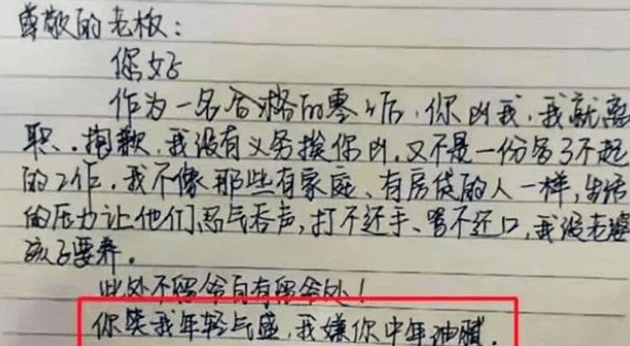 尊敬的老板:
您好
作为一名合格的零0后,你凶我,我就离
职.抱歉,我没有义务挨你凶,又不是一份多了不起
的工作.我不像那些有家庭、有房贷的人一样,生活
的压力让他们忍气吞声,打不还手、骂不还口,我没老婆
孩子要养.
此处不留爷自有留爷处!
你笑我年轻气盛,我嫌你中年油腻.